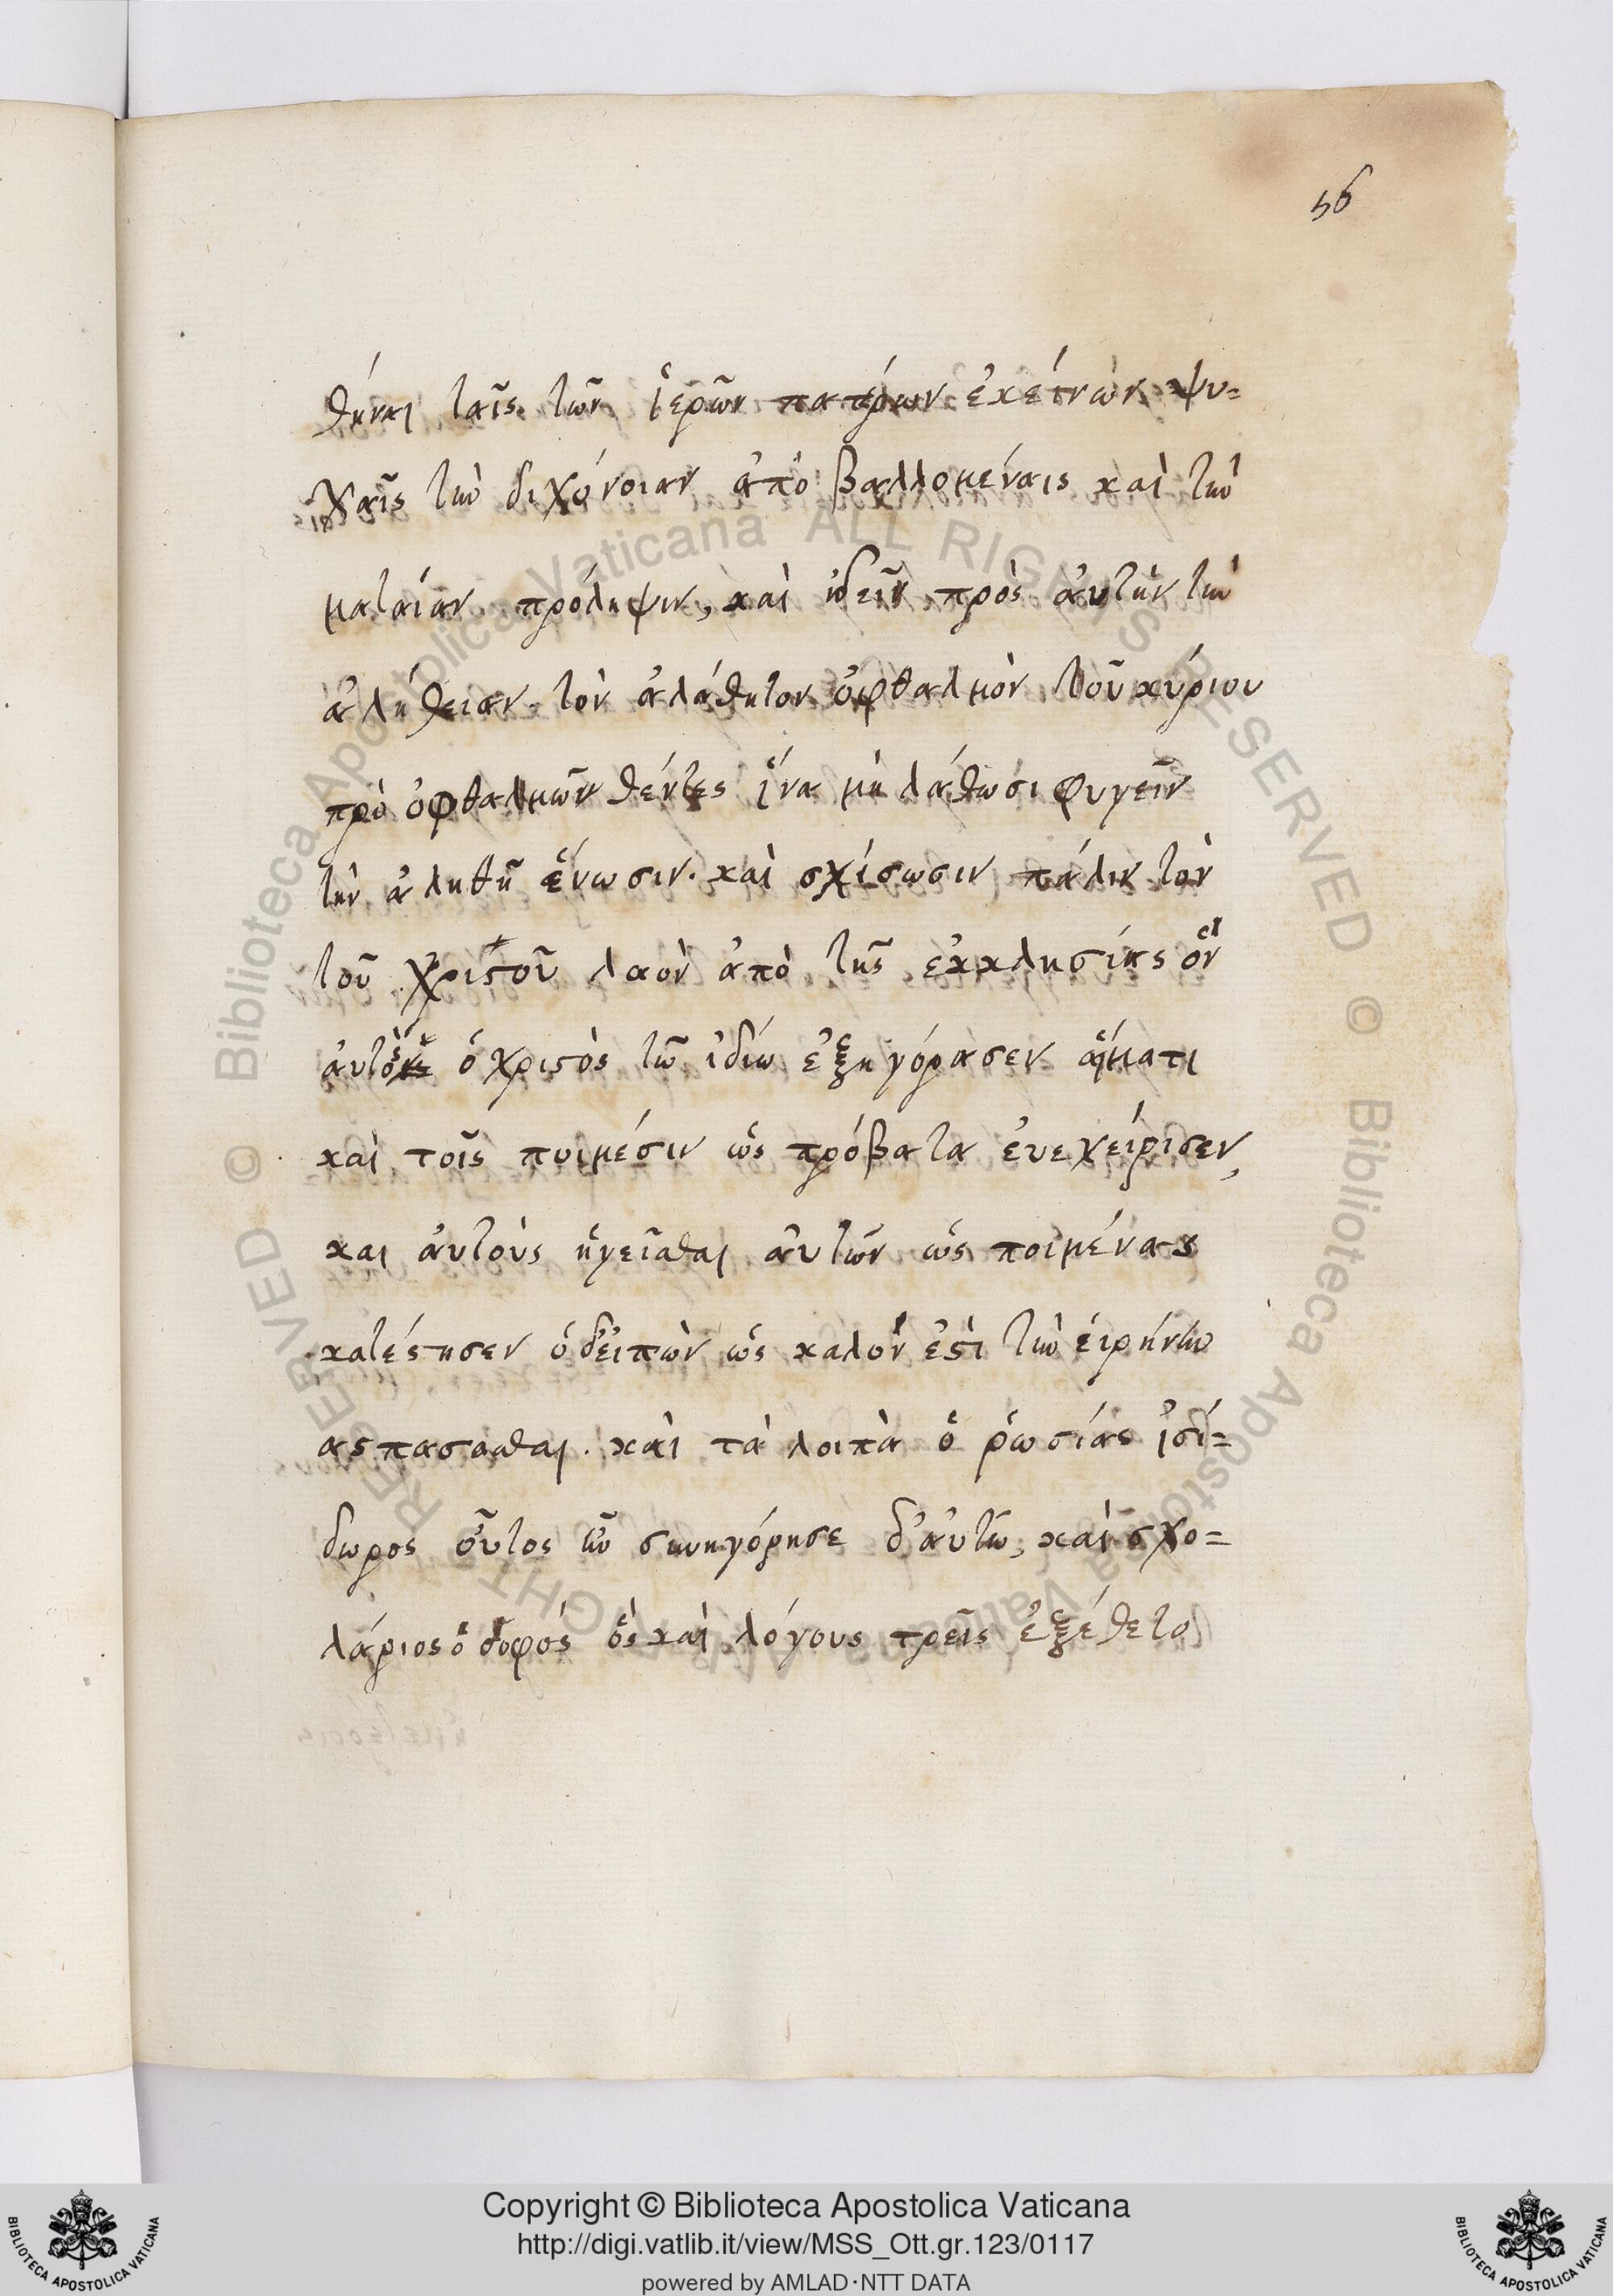 56
θῆναι ταῖς τῶν ἱερῶν πατέρων ἐκείνων ψυ=
χαῖς τὴν διχόνοιαν ἀπὸ βαλλομέναις καὶ τὴν
ματαίαν πρόληψιν, καὶ ἰδεῖν πρὸς ἀυτὴν τὴν
ἀλήθειαν τὸν ἀλάθητον ὀφθαλμὸν τοῦ κυρίου
πρὸ ὀφθαλμῶν θέντες ἵνα μὴ λάθωσι φυγεῖν
τὴν ἀληθῆ ἕνωσιν. καὶ σχίσωσιν πάλιν τὸν
τοῦ χριστοῦ λαὸν ἀπὸ τῆς ἐκκλησίας ὃν
ἀυτὸς ὁ χριστὸς τῶ ἰδίω ἐξηγόρασεν αἵματι
καὶ τοῖς ποιμέσιν ὡς πρόβατα ἐνεχείρισεν,
και ἀυτοὺς ἡγεῖσθαι ἀυτῶν ὡς ποιμένας
κατέστησεν ὁ δ' ἐιπὼν ὡς καλὸν ἐστὶ τὴν ἐιρήνην
ασπασασθαι. καὶ τὰ λοιπὰ ὁ ῥωσίας ἰσί=
δωρος οὗτος ἦν συνηγόρησε δ' ἀυτῶ, καὶ σχο=
λάριος ὁ σοφός ὃς καὶ λόγους τρεῖς ἐξέθετο
Copyright © Biblioteca Apostolica Vaticana
http://digi.vatlib.it/view/MSS_Ott.gr.123/0117
powered by AMLAD·NTT DATA
BIBLIOTECA APOSTOLICA VATICANA
BIBLIOTECA APOSTOLICA VATICANA
© Biblioteca Apostolica Vaticana ALL RIGHTS RESERVED © Biblioteca Apostolica Vaticana ALL RIGHTS RESERVED